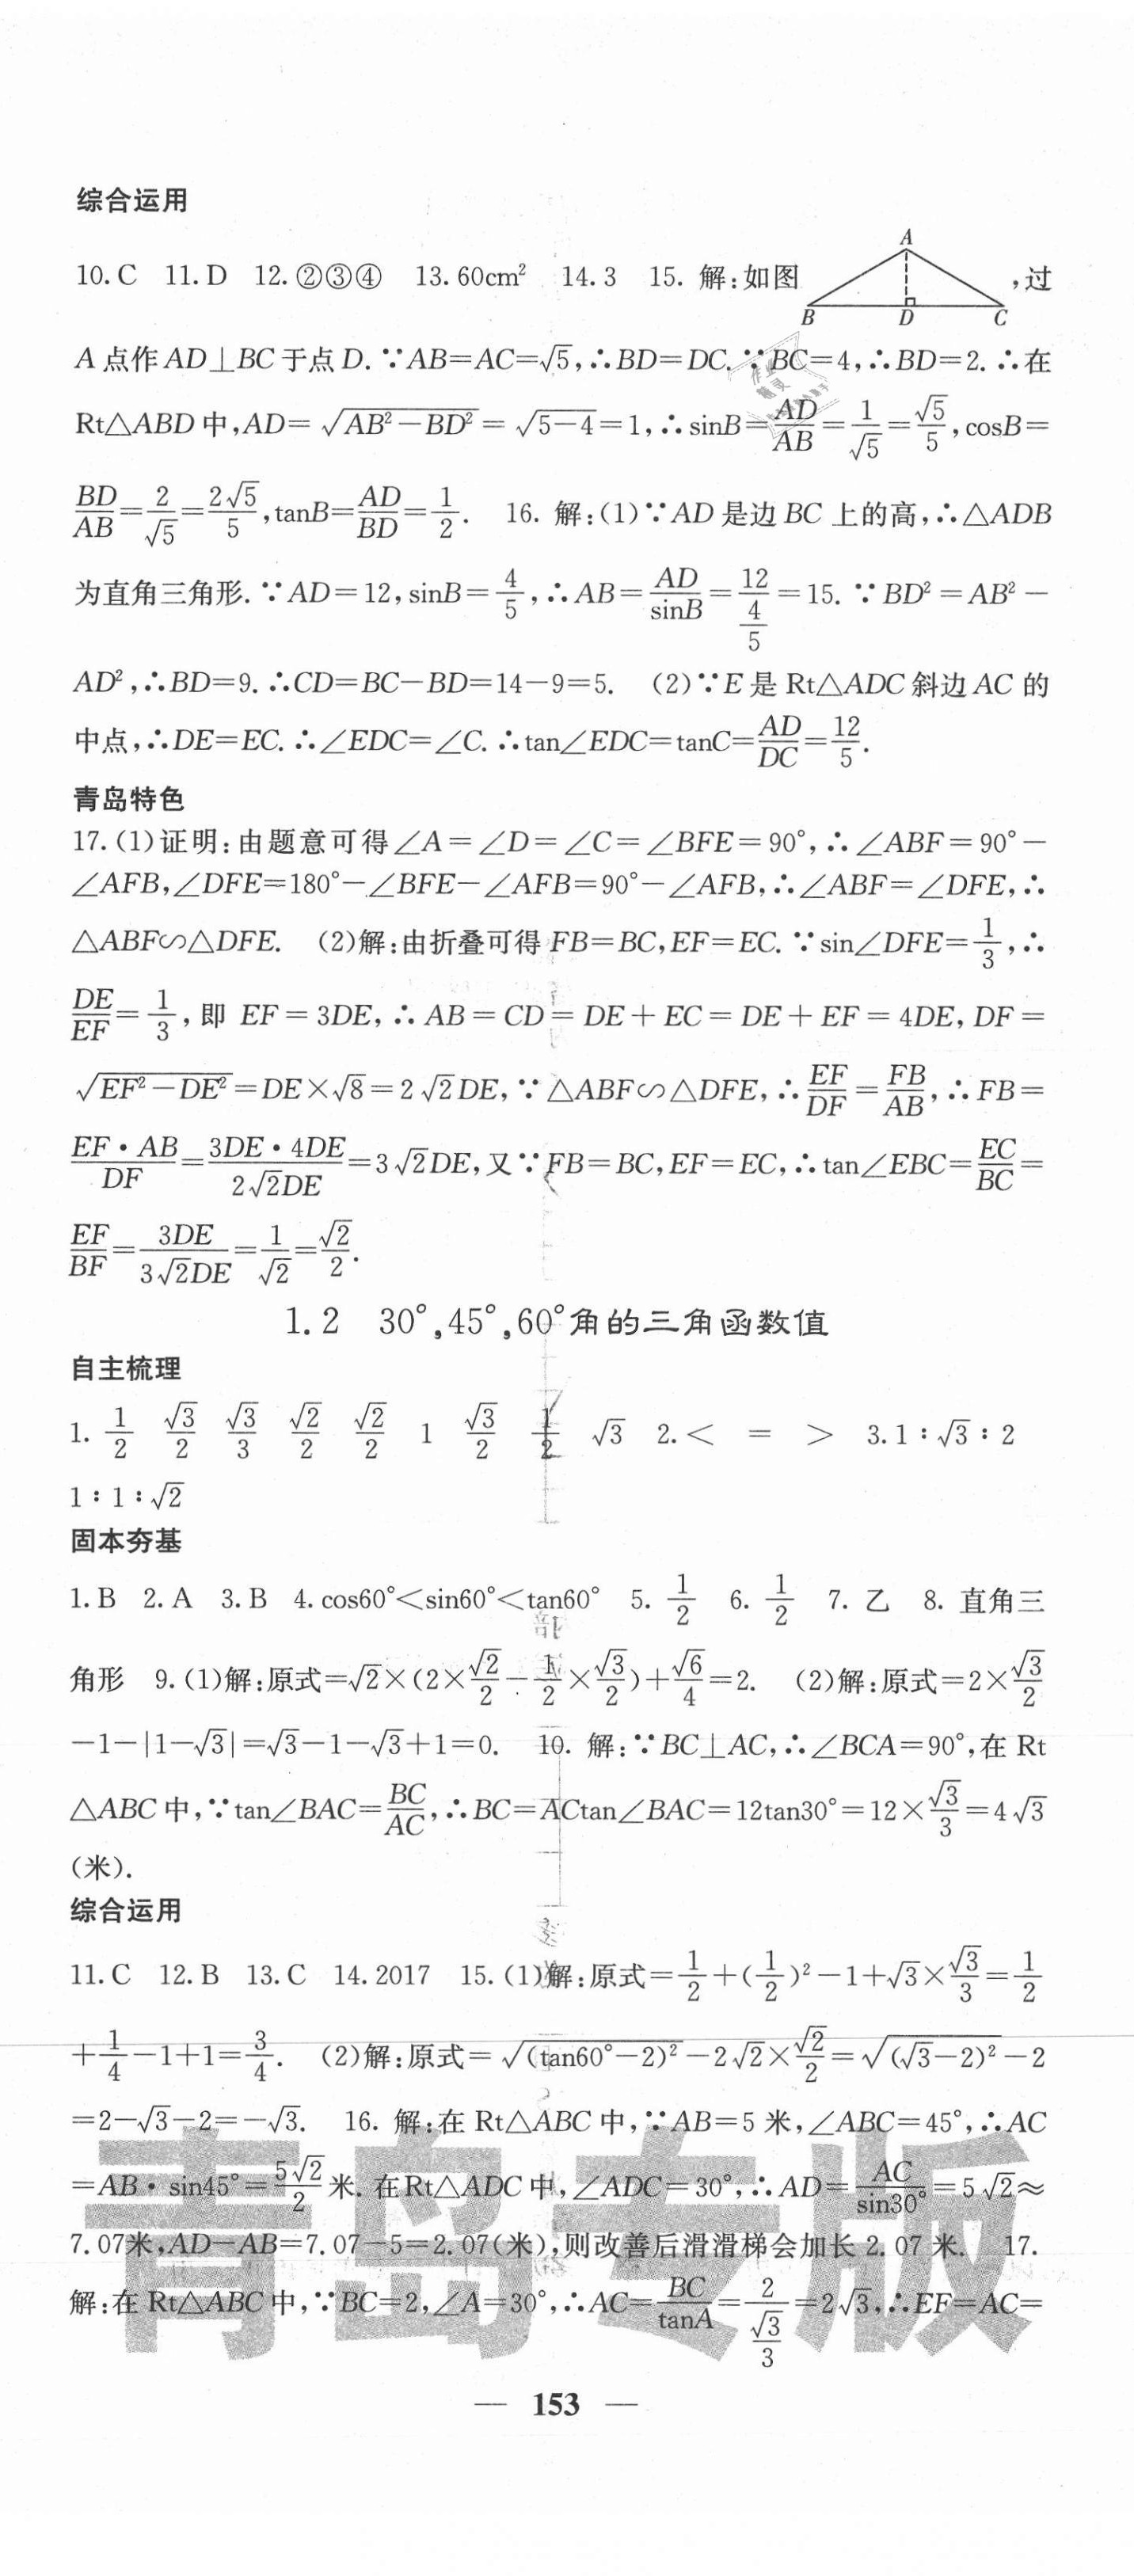 综合运用
10. C 11. D 12. ②③④ 13. 60cm² 14. 3 15. 解:如图 A B D C ,过
A 点作 AD⊥BC 于点 D. ∵AB=AC=√5,∴BD=DC. ∵BC=4,∴BD=2. ∴在
Rt△ABD 中,AD=√(AB²-BD²)=√(5-4)=1,∴sinB=AD/AB=1/√5=√5/5,cosB=
BD/AB=2/√5=2√5/5,tanB=AD/BD=1/2. 16. 解:(1)∵AD 是边 BC 上的高,∴△ADB
为直角三角形. ∵AD=12,sinB=4/5,∴AB=AD/sinB=12/(4/5)=15. ∵BD²=AB²-
AD²,∴BD=9. ∴CD=BC-BD=14-9=5. (2)∵E 是 Rt△ADC 斜边 AC 的
中点,∴DE=EC. ∴∠EDC=∠C. ∴tan∠EDC=tanC=AD/DC=12/5.
青岛特色
17. (1)证明:由题意可得∠A=∠D=∠C=∠BFE=90°,∴∠ABF=90°-
∠AFB,∠DFE=180°-∠BFE-∠AFB=90°-∠AFB,∴∠ABF=∠DFE,∴
△ABF∽△DFE. (2)解:由折叠可得 FB=BC,EF=EC. ∵sin∠DFE=1/3,∴
DE/EF=1/3,即 EF=3DE,∴AB=CD=DE+EC=DE+EF=4DE,DF=
√(EF²-DE²)=DE×√8=2√2DE,∵△ABF∽△DFE,∴EF/DF=FB/AB,∴FB=
EF·AB/DF=3DE·4DE/2√2DE=3√2DE,又∵FB=BC,EF=EC,∴tan∠EBC=EC/BC=
EF/BF=3DE/3√2DE=1/√2=√2/2.
1.2 30°,45°,60°角的三角函数值
自主梳理
1. 1/2 √3/2 √3/3 √2/2 √2/2 1 √3/2 1/2 √3 2. < = > 3. 1∶√3∶2
1∶1∶√2
固本夯基
1. B 2. A 3. B 4. cos60°<sin60°<tan60° 5. 1/2 6. 1/2 7. 乙 8. 直角三
角形 9. (1)解:原式=√2×(2×√2/2-1/2×√3/2)+√6/4=2. (2)解:原式=2×√3/2
-1-|1-√3|=√3-1-√3+1=0. 10. 解:∵BC⊥AC,∴∠BCA=90°,在 Rt
△ABC 中,∵tan∠BAC=BC/AC,∴BC=ACtan∠BAC=12tan30°=12×√3/3=4√3
(米).
综合运用
11. C 12. B 13. C 14. 2017 15. (1)解:原式=1/2+(1/2)²-1+√3×√3/3=1/2
+1/4-1+1=3/4. (2)解:原式=√(tan60°-2)²-2√2×√2/2=√(√3-2)²-2
=2-√3-2=-√3. 16. 解:在 Rt△ABC 中,∵AB=5 米,∠ABC=45°,∴AC
=AB·sin45°=5√2/2米. 在Rt△ADC 中,∠ADC=30°,∴AD=AC/sin30°=5√2≈
7.07米,AD-AB=7.07-5=2.07(米),则改善后滑滑梯会加长 2.07 米. 17.
解:在 Rt△ABC 中,∵BC=2,∠A=30°,∴AC=BC/tanA=2/(√3/3)=2√3,∴EF=AC=
青岛专版
— 153 —